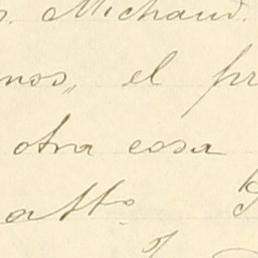 s. Michaud.
nos, el pr
otra cosa
atto